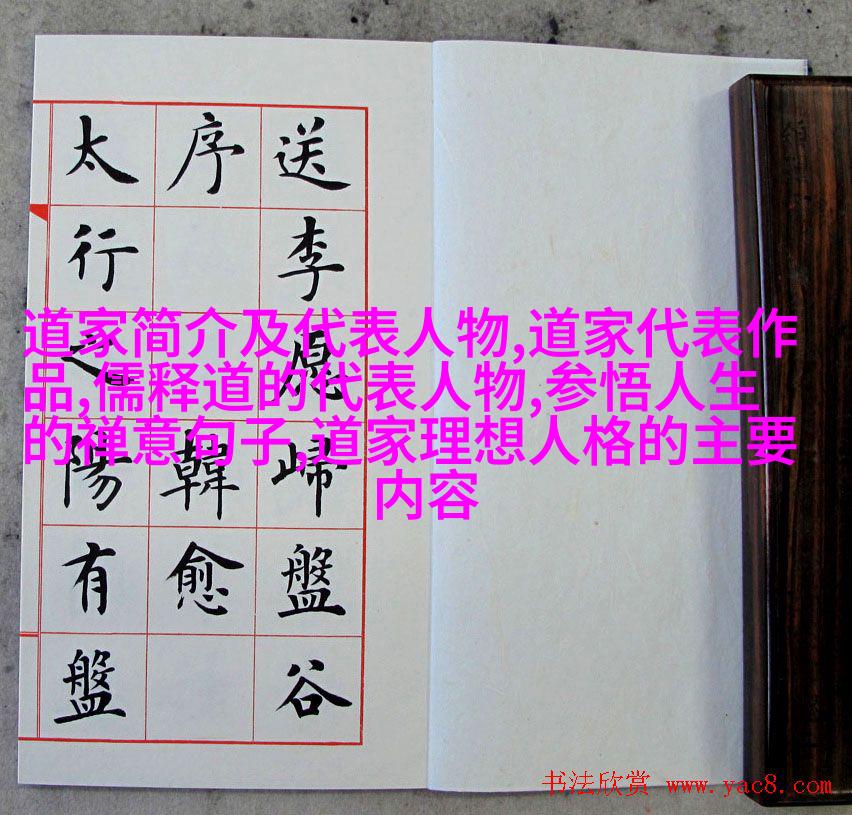 送李愿歸盤谷
序 韓愈
太行之陽有盤
道家简介及代表人物,道家代表作
品,儒释道的代表人物,参悟人生
的禅意句子,道家理想人格的主要
内容
书法欣赏 www.yac8.com